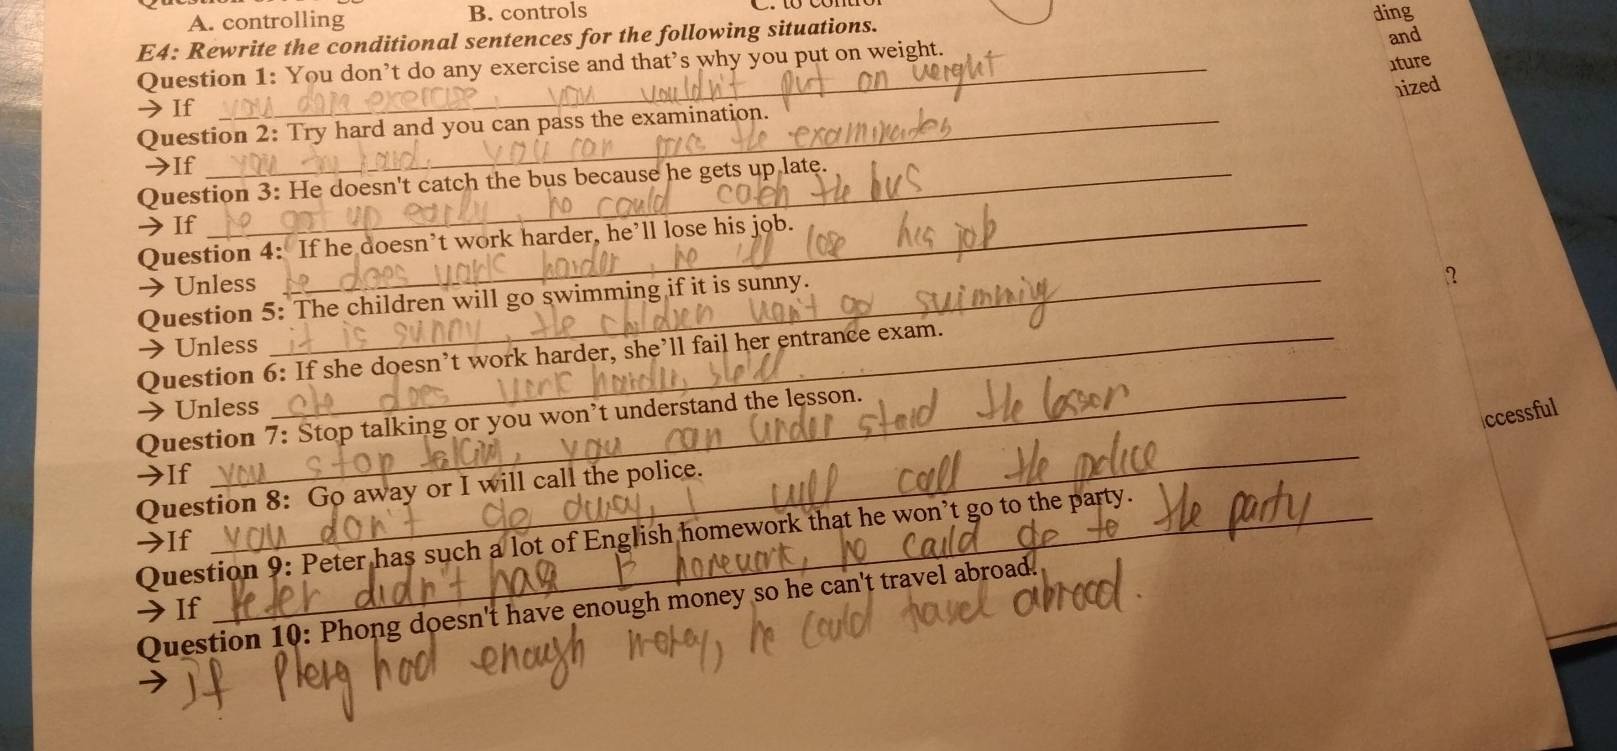 A. controlling B. controls C. to control
E4: Rewrite the conditional sentences for the following situations.
Question 1: You don't do any exercise and that's why you put on weight.
→ If you exercise, you wouldn't put on
Question 2: Try hard and you can pass the examination.
→If you try hard, you can the
Question 3: He doesn't catch the bus because he gets up late.
→ If he got up early, he could catch the bus
Question 4: If he doesn't work harder, he'll lose his job.
→ Unless he does work harder, he 'll lose his job
Question 5: The children will go swimming if it is sunny.
→ Unless it is sunny, the children won't go swimming
Question 6: If she doesn't work harder, she'll fail her entrance exam.
→ Unless she does work harder, she'll
Question 7: Stop talking or you won't understand the lesson.
→If you stop talking, you can under stand the lesson
Question 8: Go away or I will call the police.
→If you don't go away, I will call the police
Question 9: Peter has such a lot of English homework that he won't go to the party.
→ If Peter didn't have E homework, he could go to the party
Question 10: Phong doesn't have enough money so he can't travel abroad.
→ If had enough money, he could travel abroad.
ding
and
uture
nized
?
ccessful